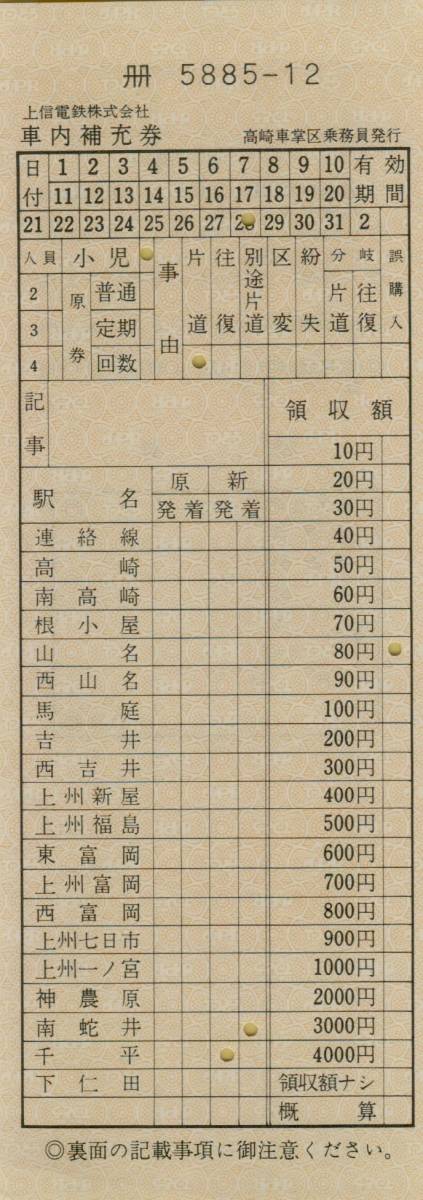 冊 5885-12
上信電鉄株式会社
車内補充券 高崎車掌区乗務員発行
日付 1 2 3 4 5 6 7 8 9 10 有効期間
11 12 13 14 15 16 17 18 19 20
21 22 23 24 25 26 27 28 29 30 31 2
人員 小児 事由 片道 往復 別途片道 区変 紛失 分岐 片道 往復 誤購入
2 原券 普通
3 定期
4 回数
記事 領収額
10円
駅名 原 新 20円
発着 発着 30円
連絡線 40円
高崎 50円
南高崎 60円
根小屋 70円
山名 80円
西山名 90円
馬庭 100円
吉井 200円
西吉井 300円
上州新屋 400円
上州福島 500円
東富岡 600円
上州富岡 700円
西富岡 800円
上州七日市 900円
上州一ノ宮 1000円
神農原 2000円
南蛇井 3000円
千平 4000円
下仁田 領収額ナシ
概算
◎裏面の記載事項に御注意ください。